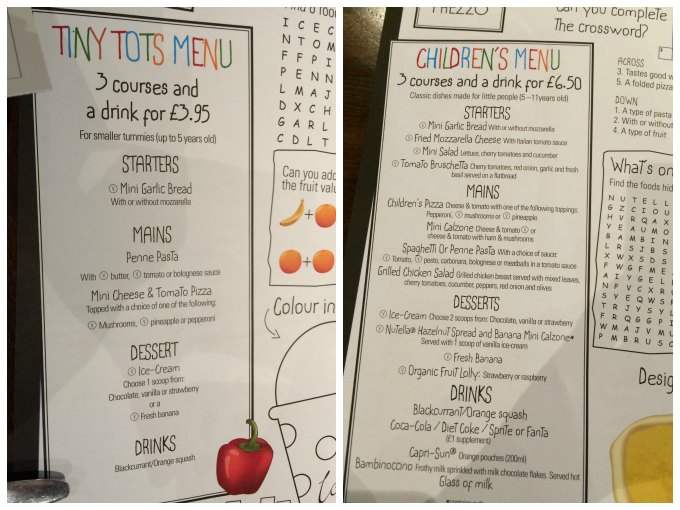 TINY TOTS MENU
3 courses and
a drink for £3.95
For smaller tummies (up to 5 years old)
STARTERS
Ⓥ Mini Garlic Bread
With or without mozzarella
MAINS
Penne Pasta
With Ⓥ butter, Ⓥ tomato or bolognese sauce
Mini Cheese & Tomato Pizza
Topped with a choice of one of the following:
Ⓥ Mushrooms, Ⓥ pineapple or pepperoni
DESSERT
Ⓥ Ice-Cream
Choose 1 scoop from:
Chocolate, vanilla or strawberry
or a
Ⓥ Fresh banana
DRINKS
Blackcurrant/Orange squash
I C E C
N T O M
F F P I
P E N N
L M A J
D X C H
G A R L
C D L T
Can you add
the fruit valu
Colour in
PREZZO
Can you complete
The crossword?
CHILDREN'S MENU
3 courses and a drink for £6.50
Classic dishes made for little people (5 –11years old)
STARTERS
Ⓥ Mini Garlic Bread With or without mozzarella
Ⓥ Fried Mozzarella Cheese With Italian tomato sauce
Ⓥ Mini Salad Lettuce, cherry tomatoes and cucumber
Ⓥ Tomato Bruschetta Cherry tomatoes, red onion, garlic and fresh
basil served on a flatbread
MAINS
Children's Pizza Cheese & tomato with one of the following toppings:
Pepperoni, Ⓥ mushrooms or Ⓥ pineapple
Mini Calzone Cheese & tomato Ⓥ or
cheese & tomato with ham & mushrooms
Spaghetti Or Penne Pasta With a choice of sauce:
Ⓥ Tomato, Ⓥ pesto, carbonara, bolognese or meatballs in a tomato sauce
Grilled Chicken Salad Grilled chicken breast served with mixed leaves,
cherry tomatoes, cucumber, peppers, red onion and olives
DESSERTS
Ⓥ Ice-Cream Choose 2 scoops from: Chocolate, vanilla or strawberry
Ⓥ Nutella® Hazelnut Spread and Banana Mini Calzone*
Served with 1 scoop of vanilla ice-cream
Ⓥ Fresh Banana
Ⓥ Organic Fruit Lolly: Strawberry or raspberry
DRINKS
Blackcurrant/Orange squash
Coca-Cola / Diet Coke / Sprite or Fanta
(£1 supplement)
Capri-Sun® Orange pouches (200ml)
Bambinoccino Frothy milk sprinkled with milk chocolate flakes. Served hot
Glass of milk
ACROSS
3. Tastes good w
5. A folded pizza
DOWN
1. A type of pasta
2. With or without
4. A type of fruit
What's on
Find the foods hid
N U T E L L
G Z C I O U
H V R Q A X
Y E A U M O
B A M B I N
L R S J B S
X W X S D S
F W G F M E
A I Y G E L
N P V C X R
S Y E Q W S
T R J Y S L
F R Q G G P
W M A J V M
P M B R U S C
Desig